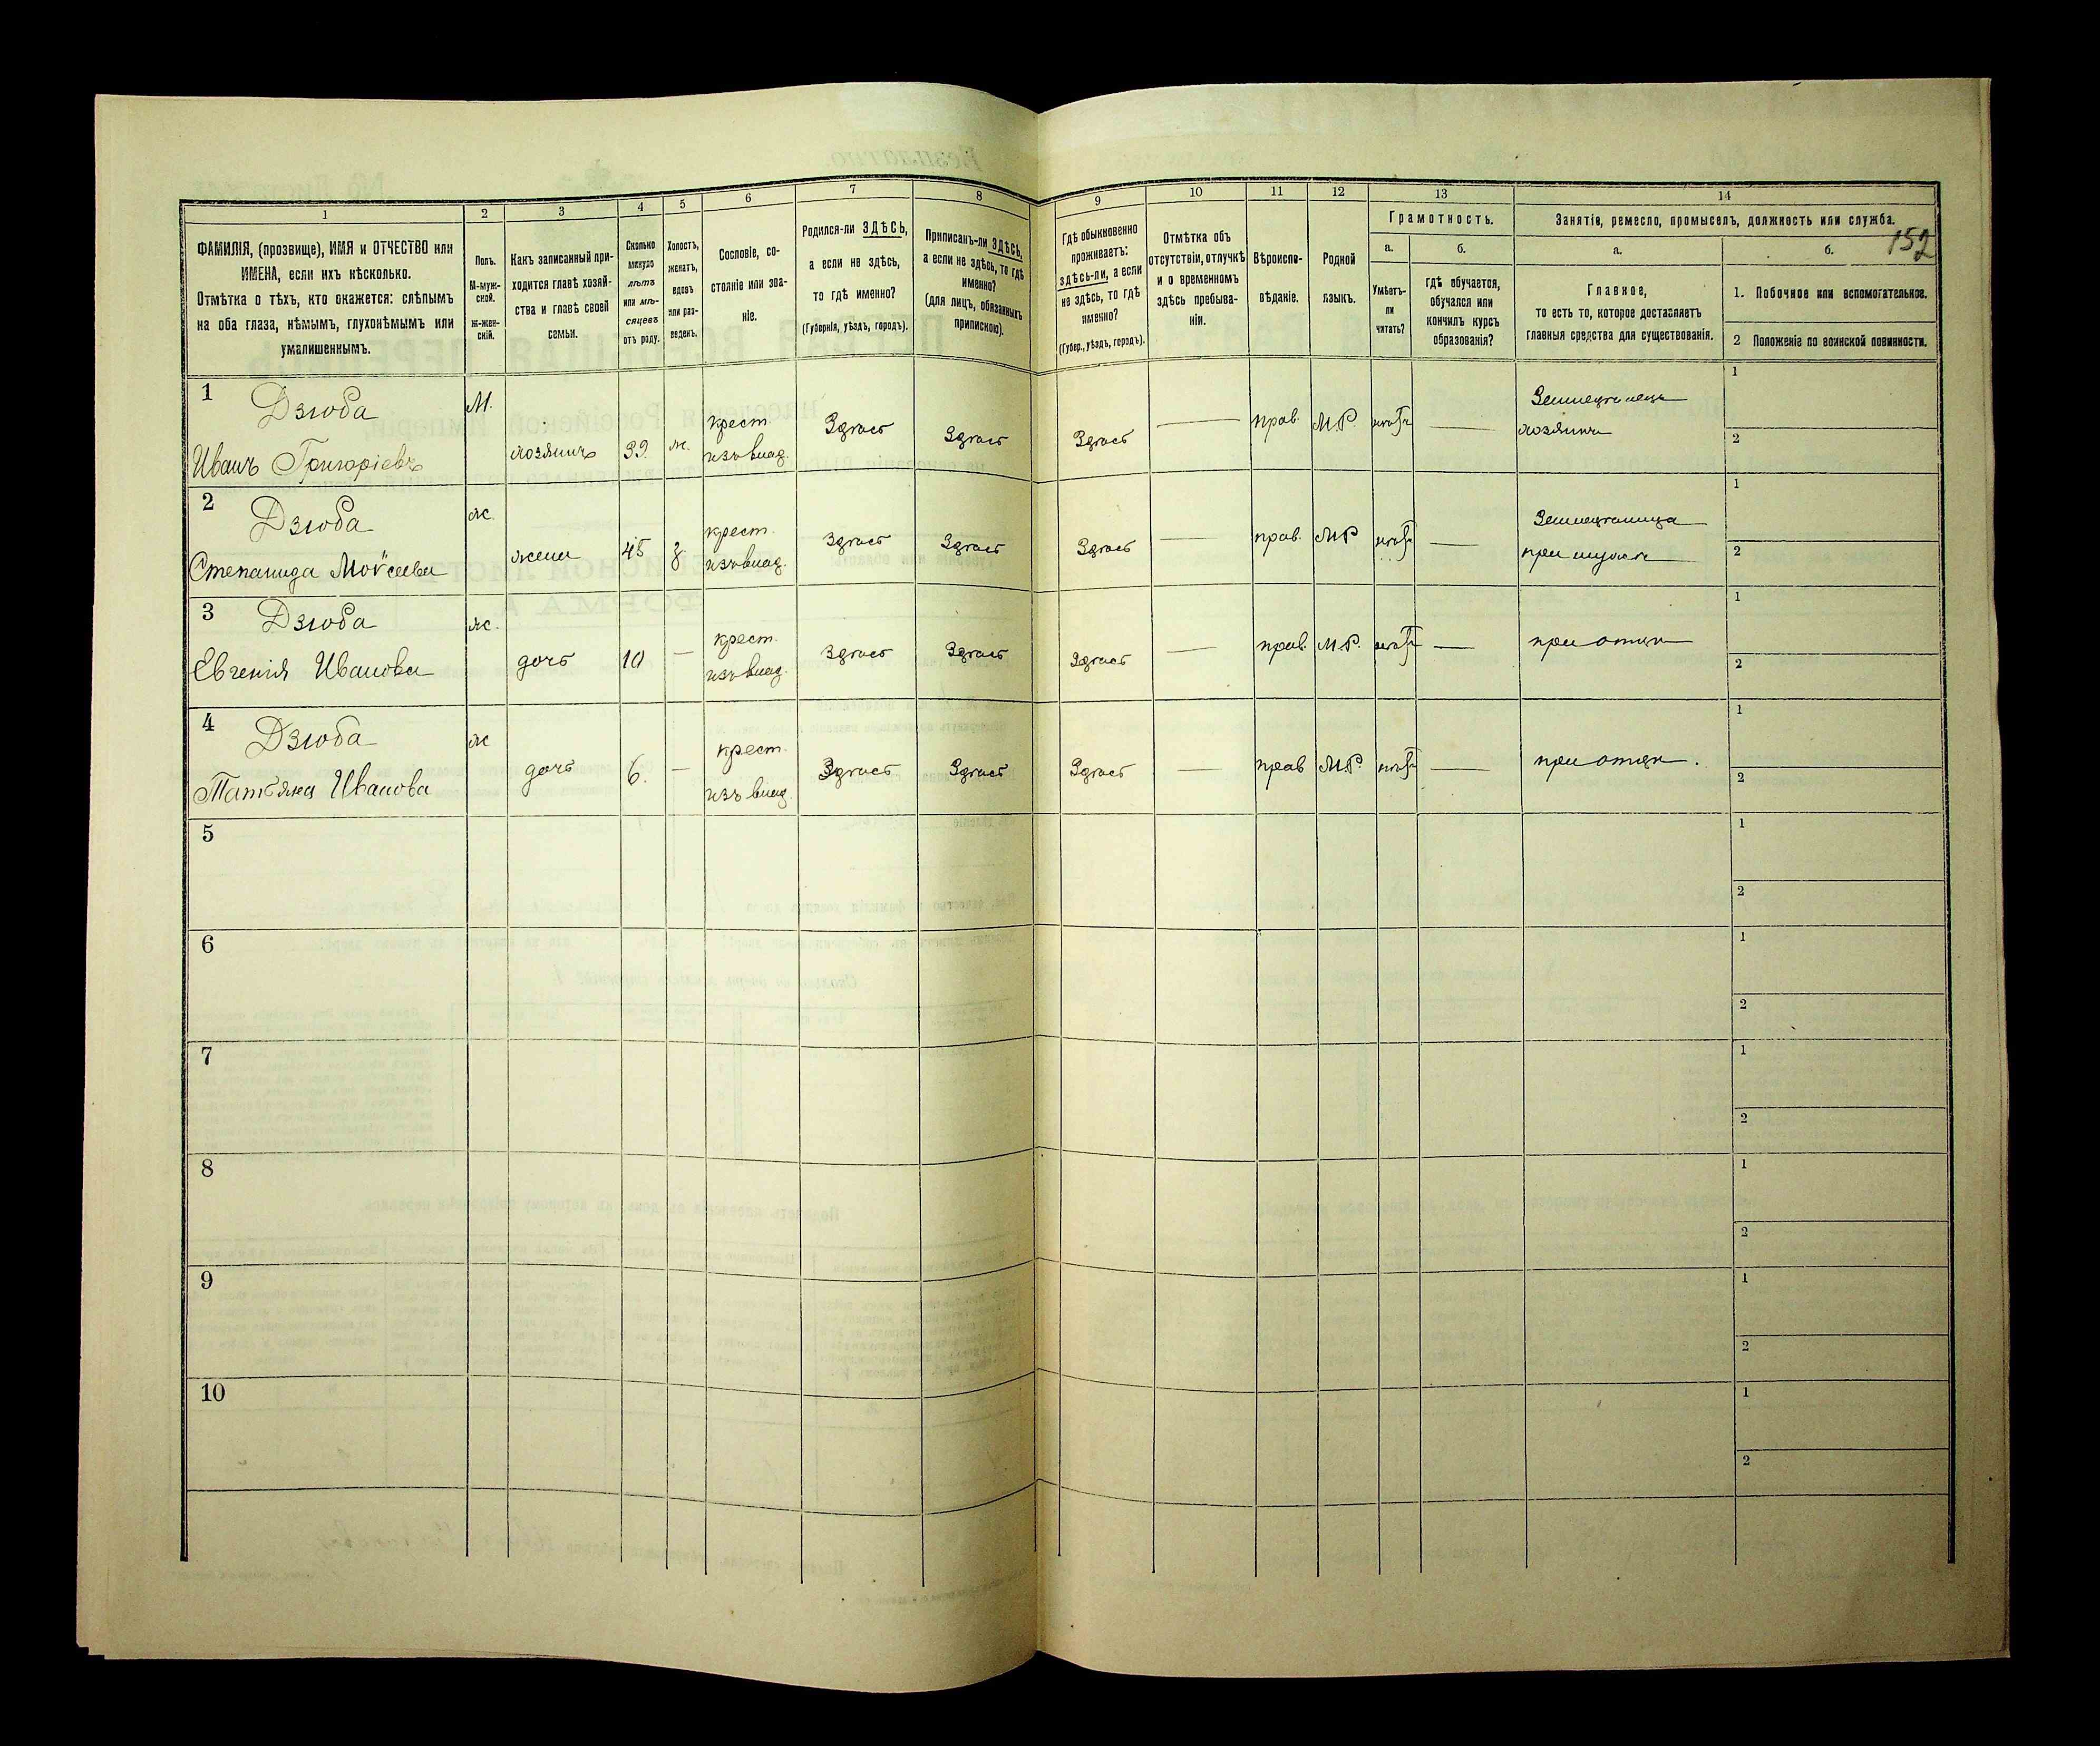 1
2
3
4
5
6
7
8
9
10
11
12
13
14
ФАМИЛІЯ, (прозвище), ИМЯ и ОТЧЕСТВО или
ИМЕНА, если ихъ нѣсколько.
Отмѣтка о тѣхъ, кто окажется: слѣпымъ
на оба глаза, нѣмымъ, глухонѣмымъ или
умалишеннымъ.
Полъ.
М-муж-
ской.
ж-жен-
скій.
Какъ записанный при-
ходится главѣ хозяй-
ства и главѣ своей
семьи.
Сколько
минуло
лѣтъ
или мѣ-
сяцевъ
отъ роду.
Холостъ,
женатъ,
вдовъ
или раз-
веденъ.
Сословіе, со-
стояніе или зва-
ніе.
Родился-ли ЗДѢСЬ,
а если не здѣсь,
то гдѣ именно?
(Губернія, уѣздъ, городъ).
Приписанъ-ли ЗДѢСЬ,
а если не здѣсь, то гдѣ
именно?
(для лицъ, обязанныхъ
припискою).
Гдѣ обыкновенно
проживаетъ:
здѣсь-ли, а если
не здѣсь, то гдѣ
именно?
(Губер., уѣздъ, городъ).
Отмѣтка объ
отсутствіи, отлучкѣ
и о временномъ
здѣсь пребыва-
ніи.
Вѣроиспо-
вѣданіе.
Родной
языкъ.
Грамотность.
а.
б.
Умѣетъ-
ли
читать?
Гдѣ обучается,
обучался или
кончилъ курсъ
образованія?
Занятіе, ремесло, промыселъ, должность или служба.
152
а.
б.
Главное,
то есть то, которое доставляетъ
главныя средства для существованія.
1. Побочное или вспомогательное.
2 Положеніе по воинской повинности.
1
Дзюба
Иванъ Григоріевъ
М.
хозяинъ
39.
ж.
крест.
изъ влад.
Здѣсь
Здѣсь
Здѣсь
—
прав.
М.Р.
нѣтъ
—
Земледѣлецъ
хозяинъ
1
2
2
Дзюба
Степанида Моѵсеева
ж.
жена
45
з
крест.
изъ влад.
Здѣсь
Здѣсь
Здѣсь
—
прав.
МР
нѣтъ
—
при мужѣ
1
2
3
Дзюба
Евгенія Иванова
ж.
дочь
10
—
крест.
изъ влад.
Здѣсь
Здѣсь
Здѣсь
—
прав.
М.Р.
нѣтъ
—
при отцѣ
1
2
4
Дзюба
Татьяна Иванова
ж
дочь
6.
—
крест.
изъ влад.
Здѣсь
Здѣсь
Здѣсь
—
прав
М.Р.
нѣтъ
—
при отцѣ.
1
2
5
1
2
6
1
2
7
1
2
8
1
2
9
1
2
10
1
2